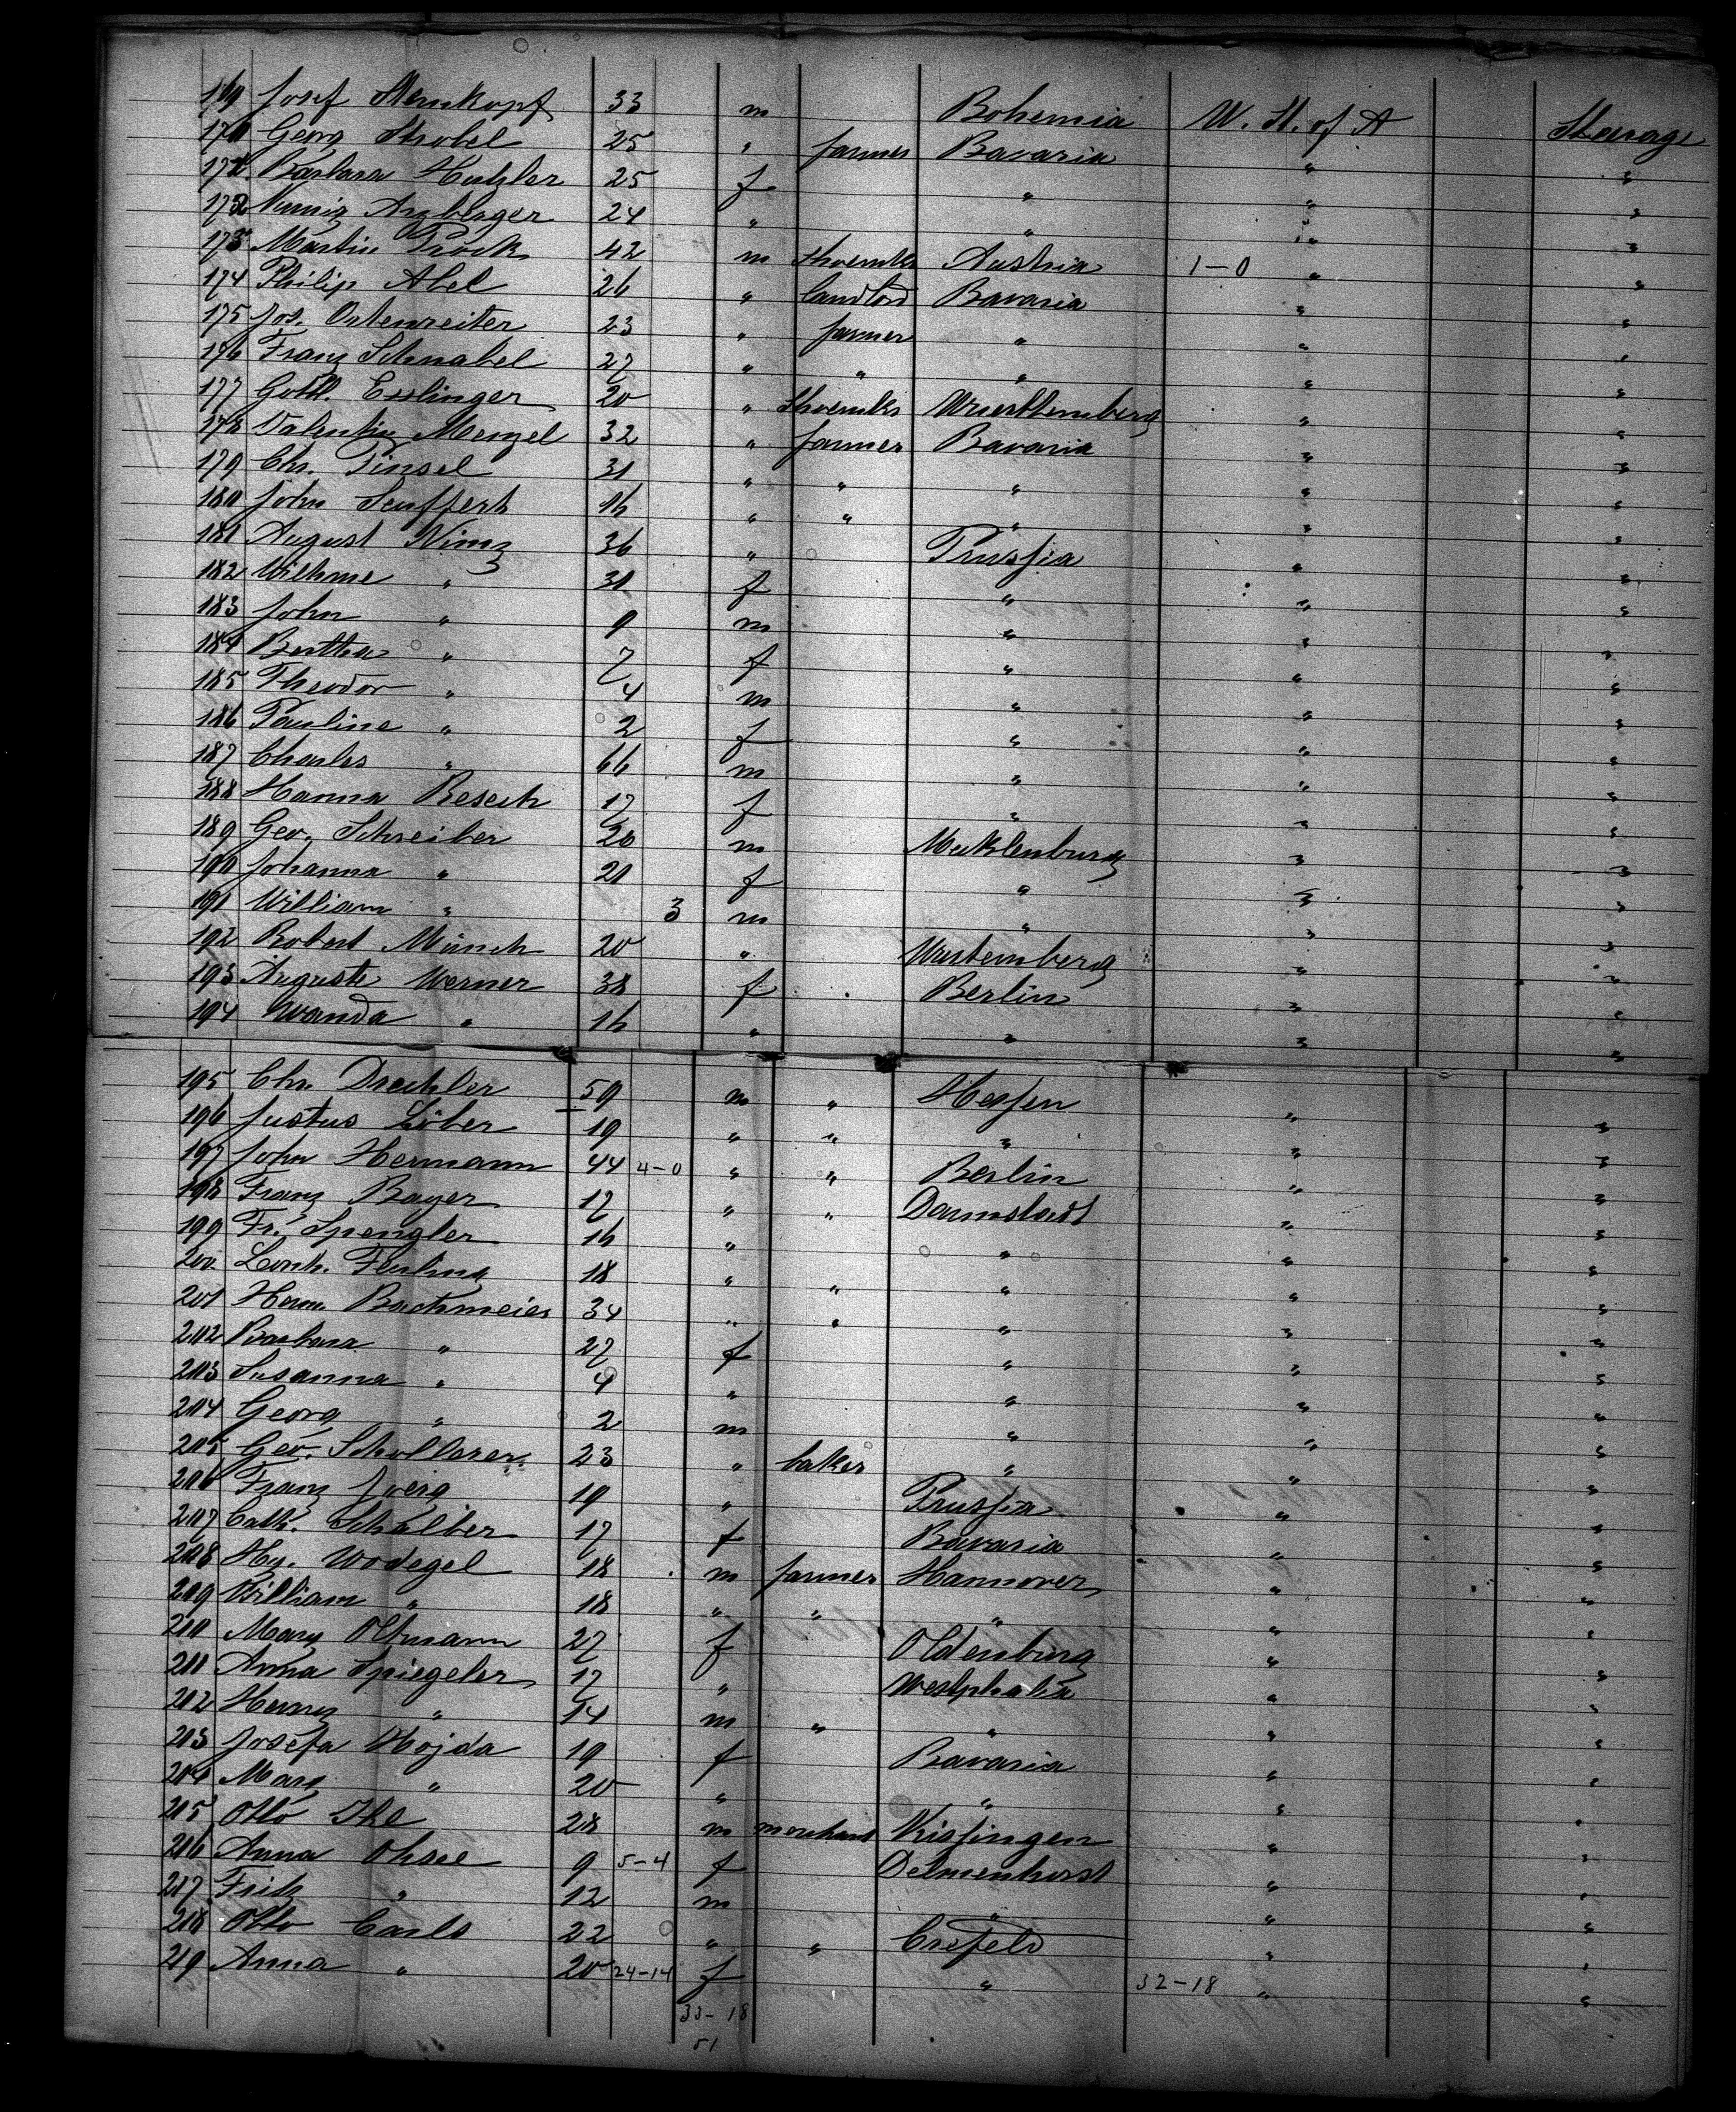 169 Josef Sternkopf 33 m Bohemia U. St. of A Sterage
170 Georg Strobel 25 " farmer Bavaria " "
171 Barbara Hutzler 25 f " " "
172 Arzberger 24 " " " "
173 Martin Prock 42 m Shoemkr Austria 1-0 " "
174 Philip Abel 26 " landlord Bavaria " "
175 Jos. Ostenreiter 23 " farmer " " "
176 Franz Schnabel 27 " " " " "
177 Gottl. Esslinger 20 " Shoemkr Wuerttemberg " "
178 Valentin Menzel 32 " farmer Bavaria " "
179 Chr. Pinsel 31 " " " " "
180 John Seuffert 16 " " " " "
181 August Nimz 36 " Prussia " "
182 Wilhme " 31 f " " "
183 John " 9 m " " "
184 Bertha " 7 f " " "
185 Theodor " 4 m " " "
186 Pauline " 2 f " " "
187 Charles " 66 m " " "
188 Hanna Resech 17 f " " "
189 Geo. Schreiber 20 m Meklenburg " "
190 Johanna " 21 f " " "
191 William " 3 m " " "
192 Robert Münch 20 " Wurtemberg " "
193 Auguste Werner 38 f Berlin " "
194 Wanda " 16 " " " "
195 Chr. Drechsler 59 m " Hessen " "
196 Justus Löber 19 " " " " "
197 John Hermann 44 4-0 " " Berlin " "
198 Franz Bayer 17 " " Darmstadt " "
199 Fr. Spengler 16 " " " "
200 Leonh. 18 " " " " "
201 Herm. Bachmeier 34 " " " " "
202 Barbara " 27 f " " "
203 Susanna " 4 " " " "
204 Georg " 2 m " " "
205 Geo. 23 " baker " " "
206 Franz Joerg 19 " Prussia " "
207 Cath. Schalber 17 f Bavaria " "
208 Hy. Wodegel 18 m farmer Hannover " "
209 William " 18 " " " " "
210 Mary Oltmann 27 f Oldenburg " "
211 Anna Spiegeler 17 " Westphalia " "
202 Henry " 14 m " " " "
203 Josefa Hojda 19 f Bavaria " "
204 Mary " 20 " " " "
205 Otto Ihl 28 m merchant Kissingen " "
216 Anna Ohsee 9 5-4 f Delmenhorst " "
217 Fritz " 12 m " " "
218 Otto Carls 22 " " Crefeld " "
219 Anna " 20 24-14 f " 32-18 " "
33-18
51